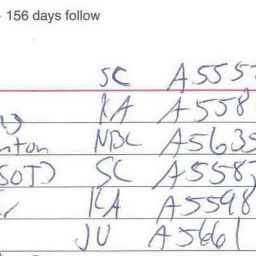 - 156 days follow
SC A5557
KA A558
nton NBC A5635
SOT) SC A5587
KA A5598
JU A5661